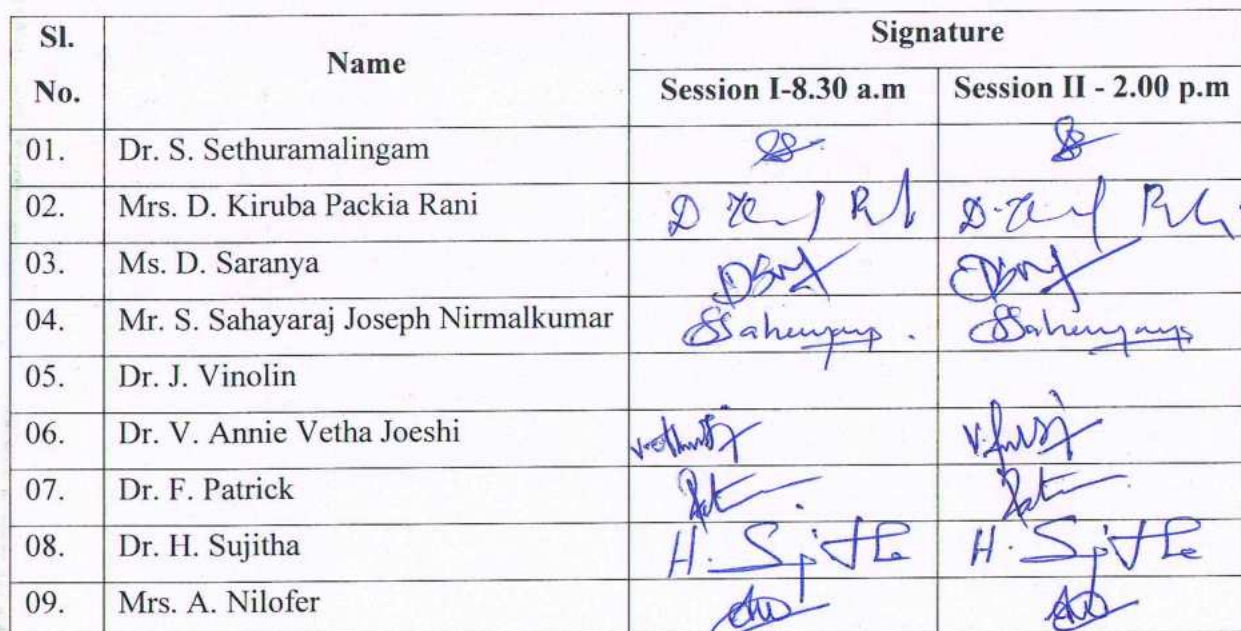 Sl. No. Name Signature
Session I-8.30 a.m Session II - 2.00 p.m
01. Dr. S. Sethuramalingam
02. Mrs. D. Kiruba Packia Rani
03. Ms. D. Saranya
04. Mr. S. Sahayaraj Joseph Nirmalkumar
05. Dr. J. Vinolin
06. Dr. V. Annie Vetha Joeshi
07. Dr. F. Patrick
08. Dr. H. Sujitha H. Sujitha H. Sujitha
09. Mrs. A. Nilofer